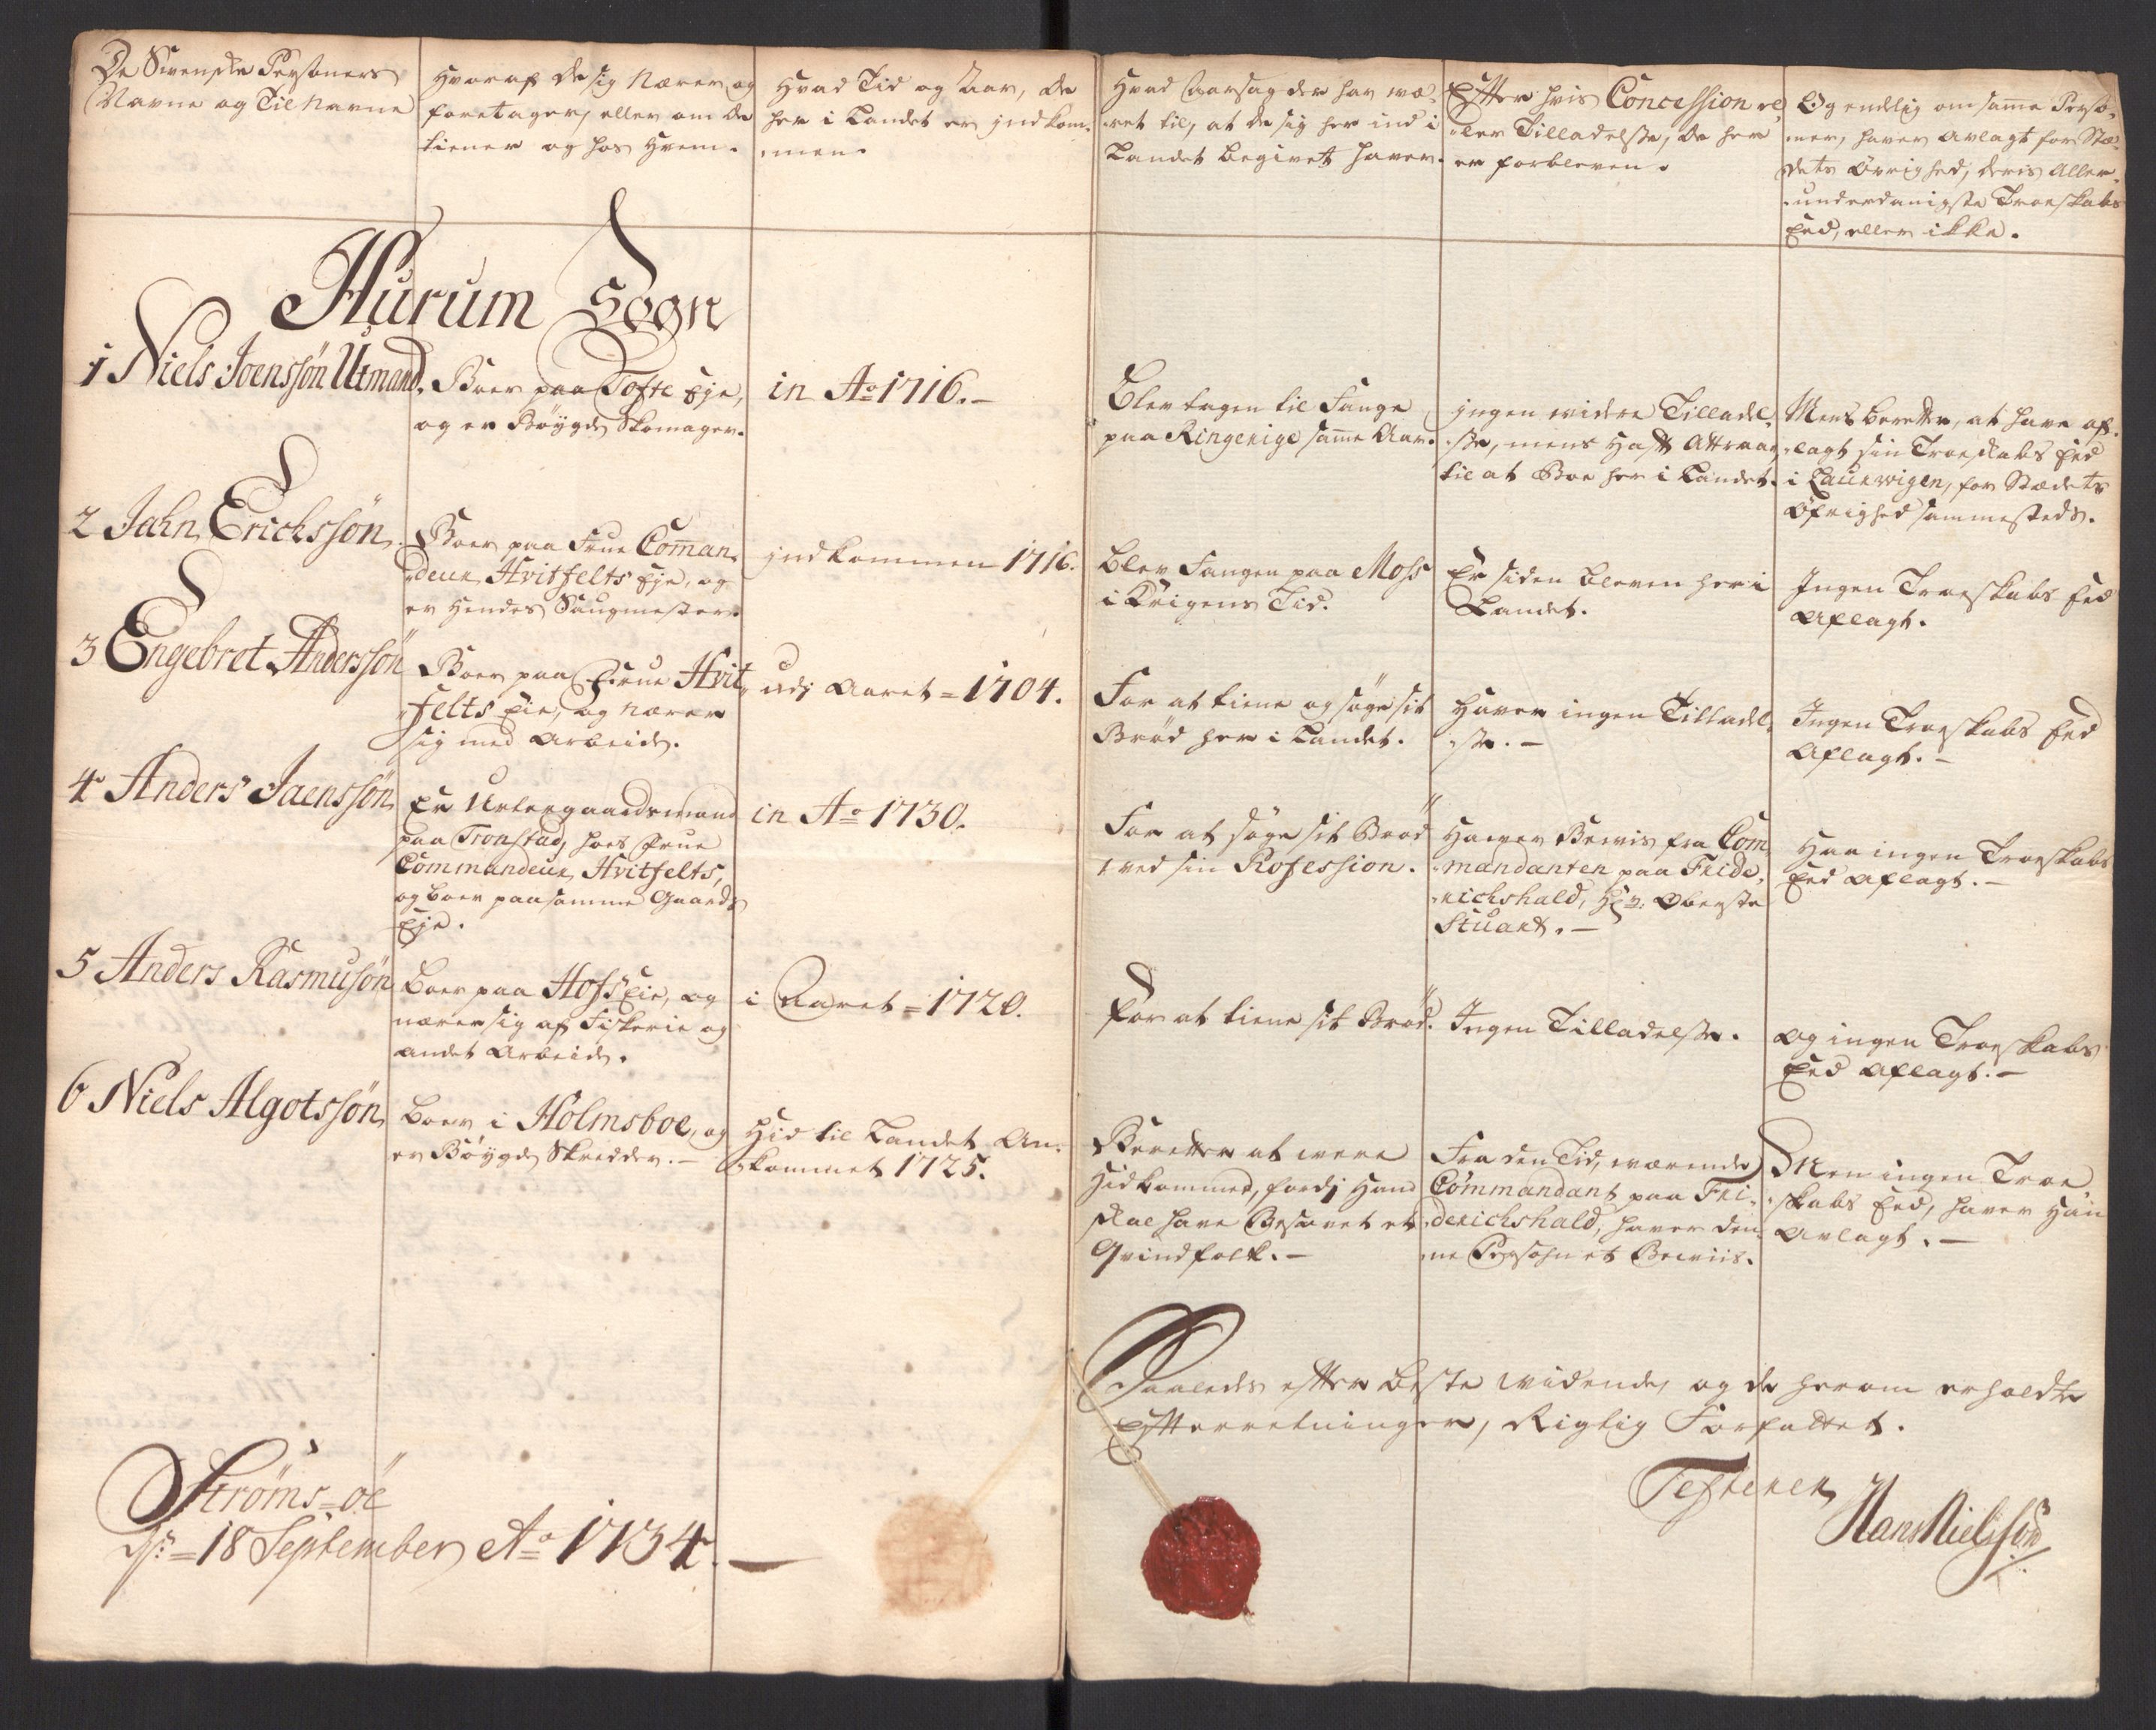 De Svenske Persohners
Navne og Til Navne
Hvoraf de sig Nærer og
foretager, eller om de
tiener og hos Hvem.
Hvad Tid og Aar, de
her i Landet er jndkom-
men.
Hvad Aarsag der har wæ-
ret til, at de sig her ind i
Landet begivet haver.
Effter hvis Concession el-
ler Tilladelsse, de her
er forbleven.
Og endelig om samme Perso-
ner, haver avlagt for Stæ-
dets Øvrighed, deris Aller-
underdanigste Troeskabs
Eed, eller ikke.
Hurum Sogn
1 Niels Joenssøn Utmand.
Boer paa Tofte Eje,
og er Bøygde Skomager.
in Ao 1716.-
Blev tagen til Fange
paa Ringerige samme Aar.
jngen widere Tilladel-
se, mens hafft Attraae
til at Boe her i Landet.
Mens beretter, at have af-
lagt sin Troeskabs Eed
i Laurwigen, for Stædets
Øfrighed sammesteds.
2 Jahn Erichssøn.
Boer paa Frue Comman-
deur Hvitfelts Eje, og
er hendes Saugmester.
jndkommen 1716.
blev Fangen paa Moss
i Krigens Tid.
Er siden bleven her i
Landet.
Ingen Troeskabs Eed
aflagt.
3 Engebret Anderssøn
Boer paa Frue Hvit-
felts Eie, og nærer
sig med Arbeide.
udj Aaret = 1704.
For at tiene og søge sit
Brød her i Landet.
Haver ingen Tilladel-
se.-
Ingen Troeskabs Eed
Aflagt.-
4 Anders Jaenssøn
Er Urtergaardsmand
paa Tronstad, hoes Frue
Commandeur Hvitfelts,
og boer paa samme Gaards
Eje.
in Ao 1730.
For at søge sit Brød
ved sin Profession.
Hawer Bewis fra Com-
mandanten paa Fride-
richshald, Hr: Oberste
Stuart.-
Haer ingen Troeskabs
Eed aflagt.-
5 Anders Rasmusøn
boer paa Hofs Eie, og
nærer sig af Fiskerie og
andet Arbeide.
i Aaret = 1720.
For at tiene sit Brød.
Ingen Tilladelsse.
og ingen Troeskabs
Eed aflagt.-
6 Niels Algotssøn
boer i Holmsboe, og
er Bøygde Skredder.-
Hid til Landet An-
kommet 1725.
Beretter at were
hidkommed, fordj Hand
skal have Besovet et
Qvindfolk.-
Fra den Tid, wærende
Commandant paa Fri-
derichshald, haver den-
ne Persohn et Bewiis.
Men ingen Troe
skabs Eed, haver Han
Avlagt.-
Saaledes effter beste widende, og de herom erholdte
Effterretninger, Rigtig Forfattet.
Strøms-øe
ds: = 18 September Ao 1734.-
Testerer
Hans Nielssøn